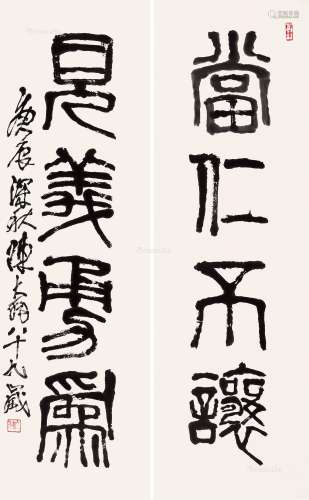 當仁不讓
見義勇為
庚辰深秋陳大羽八十九歲